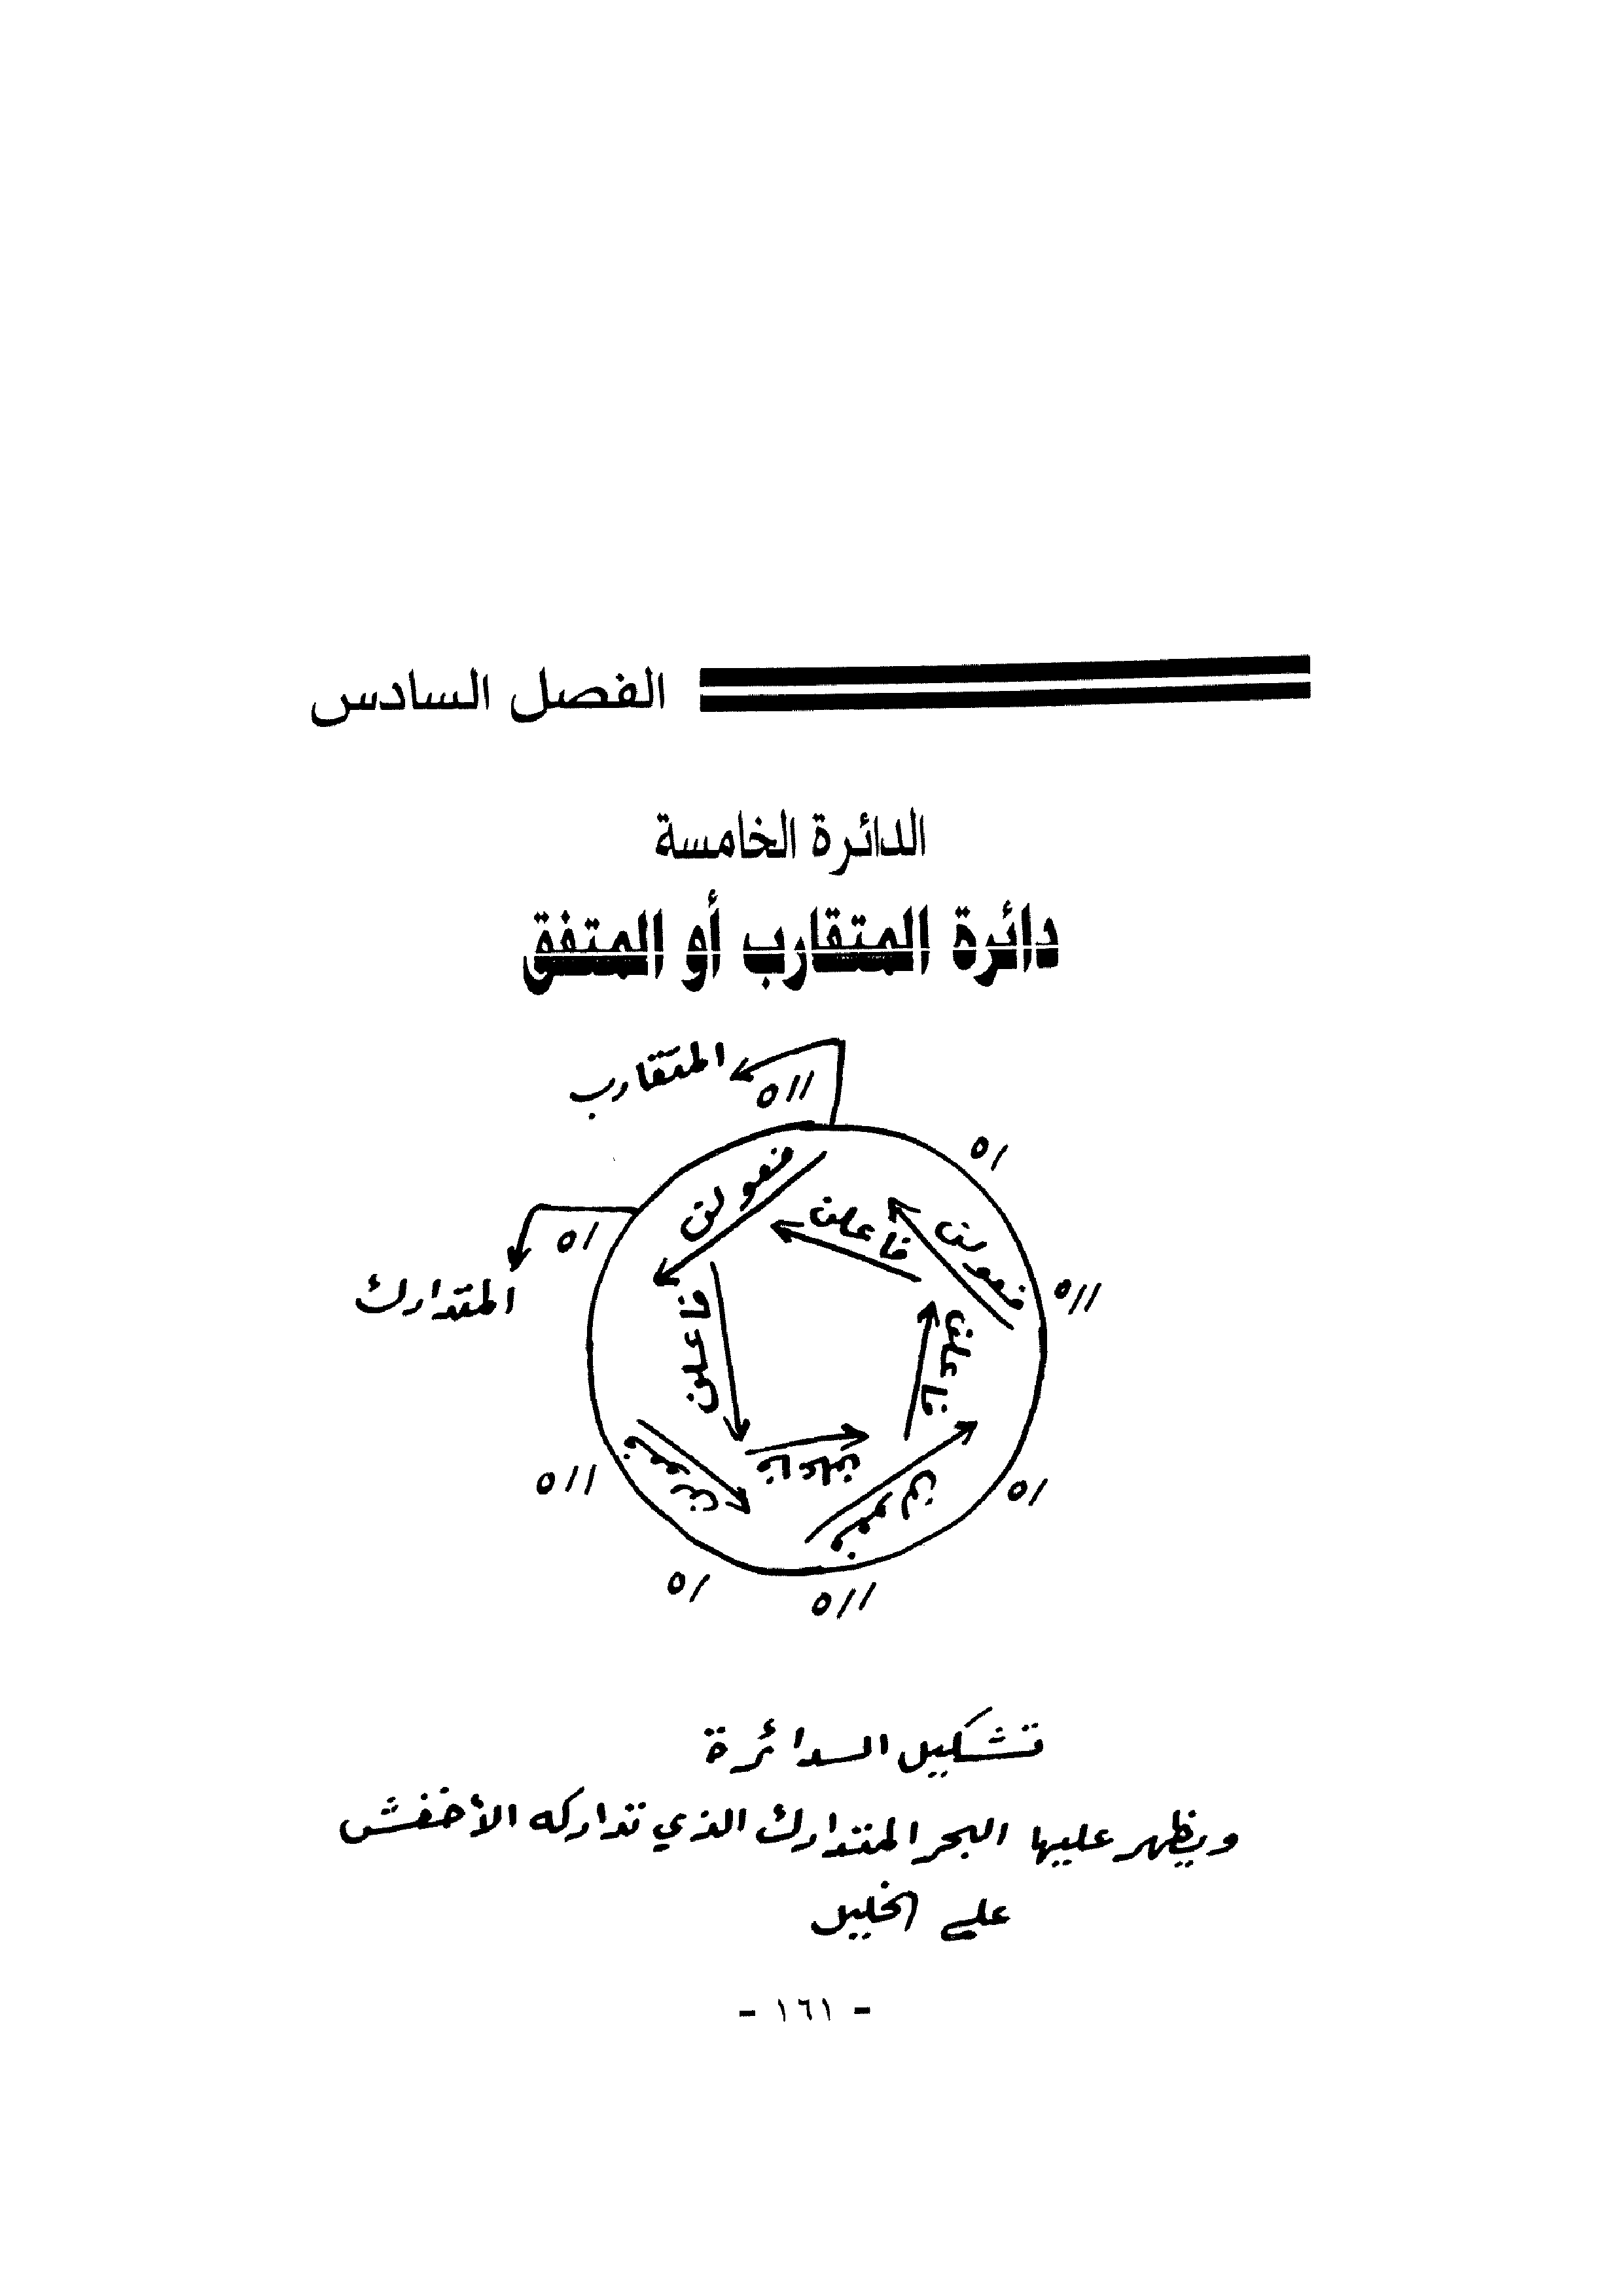 الفصل السادس
الدائرة الخامسة
دائرة المتقارب أو المتفق
المتقارب
//٥
/٥
المتدارك
/٥
//٥
فعولن
فاعلن
فعولن
فاعلن
فاعلن
فعولن
فاعلن
فعولن
//٥
/٥
/٥
//٥
تشكيل الدائرة
ويظهر عليها البحر المتدارك الذي تداركه الأخفش
على الخليل
- ١٦١ -